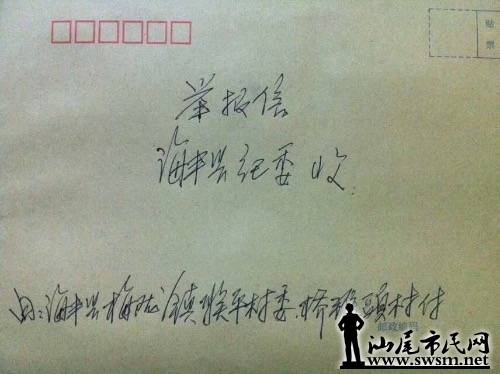 贴
票
举报信
海丰县纪委 收
由：海丰县梅陇镇 平村委 桥 頭村付
邮政编码
汕尾市民网
www.swsm.net